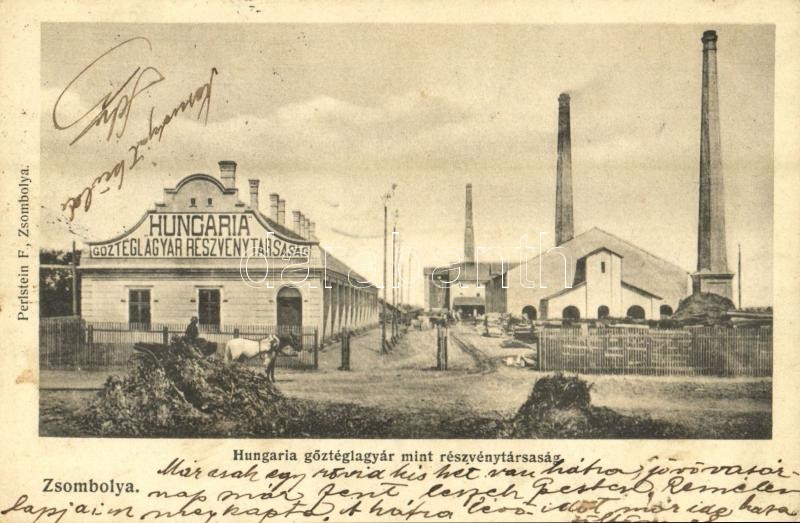 HUNGARIA
GŐZTÉGLAGYÁR RÉSZVÉNYTÁRSASÁG
Perlstein F, Zsombolya.
darabanth.com
Hungaria gőztéglagyár mint részvénytársaság
Zsombolya.
Már csak egy rövid kis hét van hátra jövő vasár-
nap már fent leszek Pesten Remélem
lapjaim megkapta A hátra lévő időt már